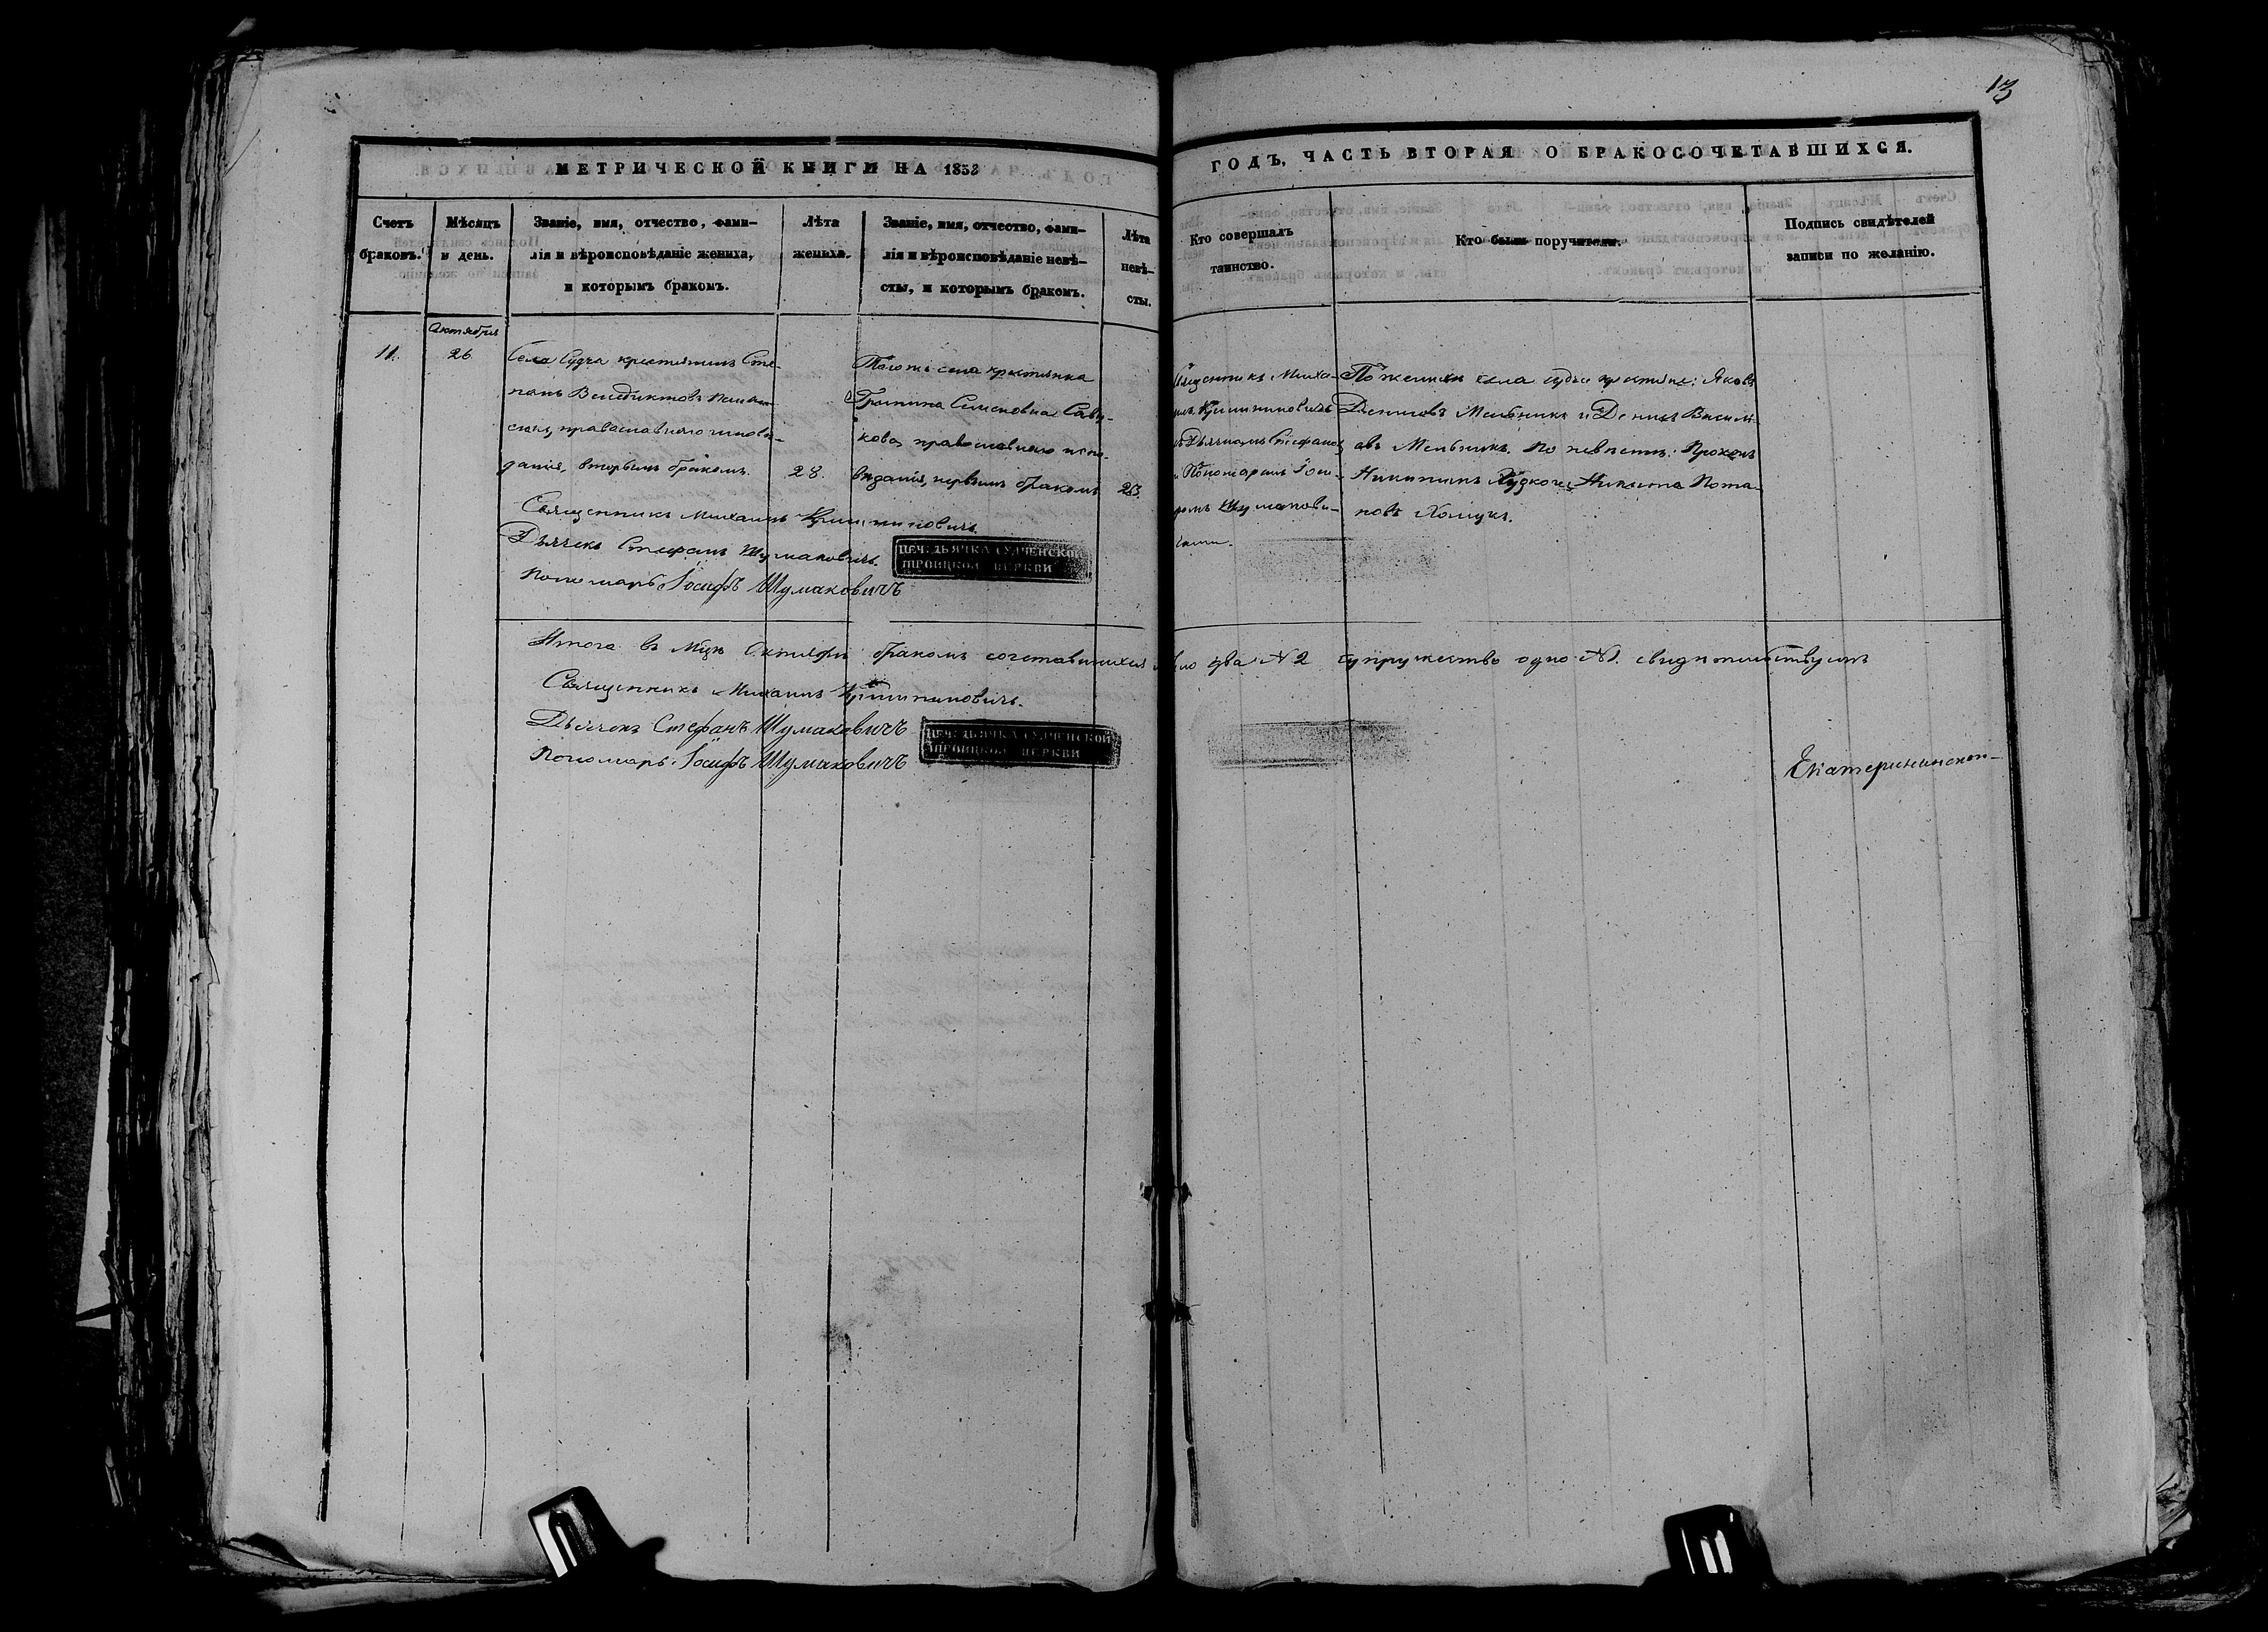 13
МЕТРИЧЕСКОЙ КНИГИ НА 1853
ГОДЪ, ЧАСТЬ ВТОРАЯ О БРАКОСОЧЕТАВШИХСЯ.
Счетъ
браковъ.
Мѣсяцъ
и день.
Званіе, имя, отчество, фами-
лія и вѣроисповѣданіе жениха,
и которымъ бракомъ.
Лѣта
жениха.
Званіе, имя, отчество, фами-
лія и вѣроисповѣданіе невѣ-
сты, и которымъ бракомъ.
Лѣта
невѣ-
сты.
Кто совершалъ
таинство.
Кто были поручители.
Подпись свидѣтелей
записи по желанію.
11.
Октября
26
Села Судча крестьянинъ Сте-
панъ Венедиктовъ
православнаго исповѣ-
данія, вторымъ бракомъ.
28.
Тогожъ села крестьянка
Семеновна Саву-
кова, православнаго испо-
вѣданія, первымъ бракомъ
23.
Священникъ Миха-
Дьячкомъ Стефаномъ
и Пономаремъ Іоси-
фомъ Шумакови-
чами.
По женихѣ села Судчи крестьяне: Яковъ
Денисовъ Мельникъ и Денисъ Василь-
евъ Мельникъ. По невѣстѣ: Прохоръ
Никитинъ Никита Пота-
повъ Хомукъ.
Священникъ Михаилъ
Дьячекъ Стефанъ Шумаковичъ.
Пономарь Іосифъ Шумаковичъ
ПЕЧ: ДЬЯЧКА СУДЧЕНСКОЙ
ТРОИЦКОЙ ЦЕРКВИ
Итого въ Мцѣ Октябрѣ бракомъ сочетавшихся было два №2 супружество одно №1. свидѣтельствуемъ
Священникъ Михаилъ
Дьячекъ Стефанъ Шумаковичъ
Пономарь Іосифъ Шумаковичъ
ПЕЧ: ДЬЯЧКА СУДЧЕНСКОЙ
ТРОИЦКОЙ ЦЕРКВИ
Екатерининской-